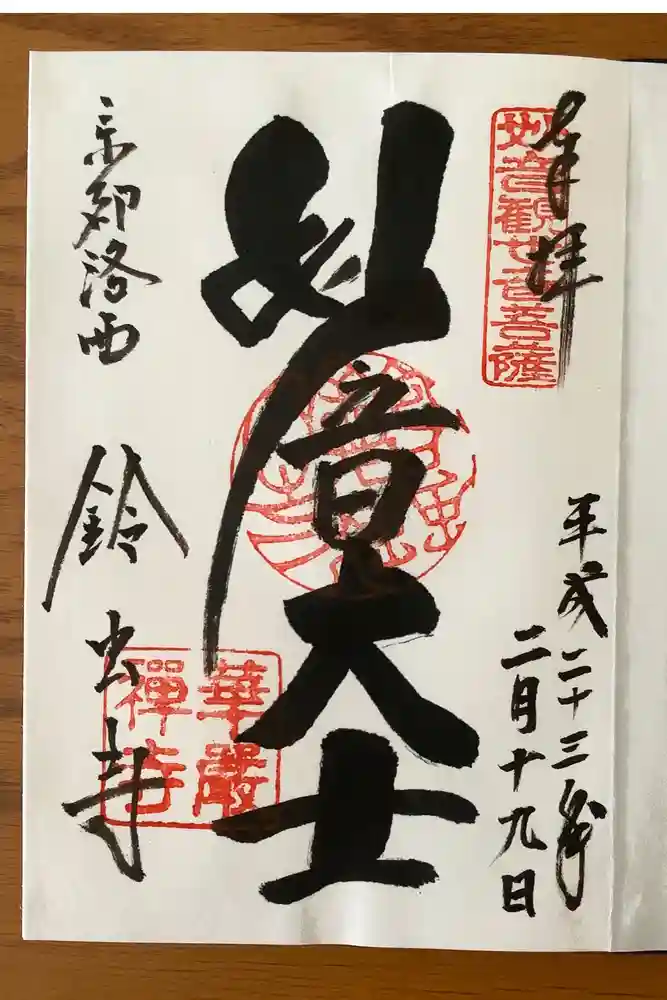 奉拝
妙音觀世音菩薩
平成二十三年
二月十九日
妙音大士
華嚴
禪寺
京都洛西
鈴虫寺